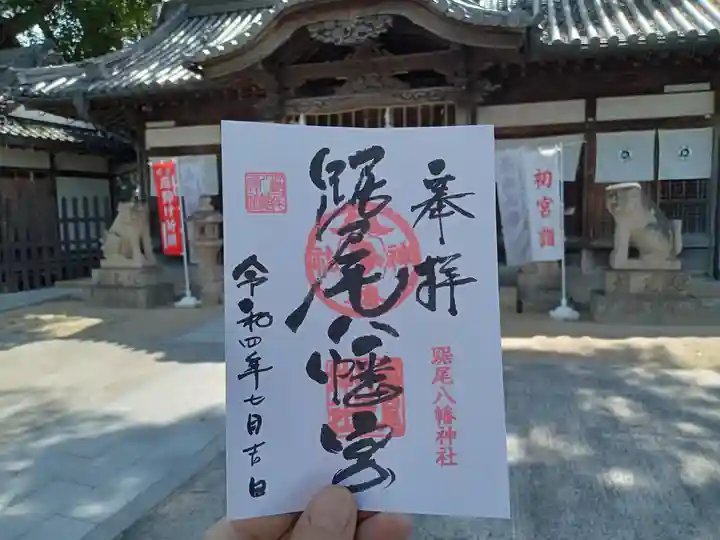 奉拝
踞尾八幡宮
踞尾八幡神社
令和四年七月吉日
初宮詣